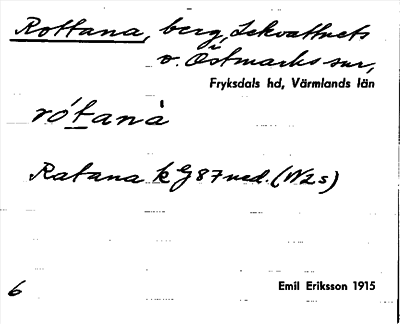 Rottana, berg, Lekvattnets
o. Östmarks snr,
Fryksdals hd, Värmlands län
rótanà
Ratana k G 87 ned. (N2s)
6
Emil Eriksson 1915